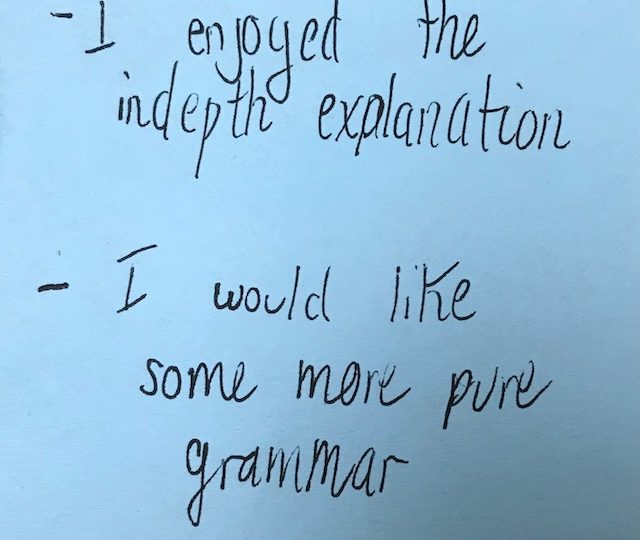 - I enjoyed the
indepth explanation
- I would like
some more pure
grammar